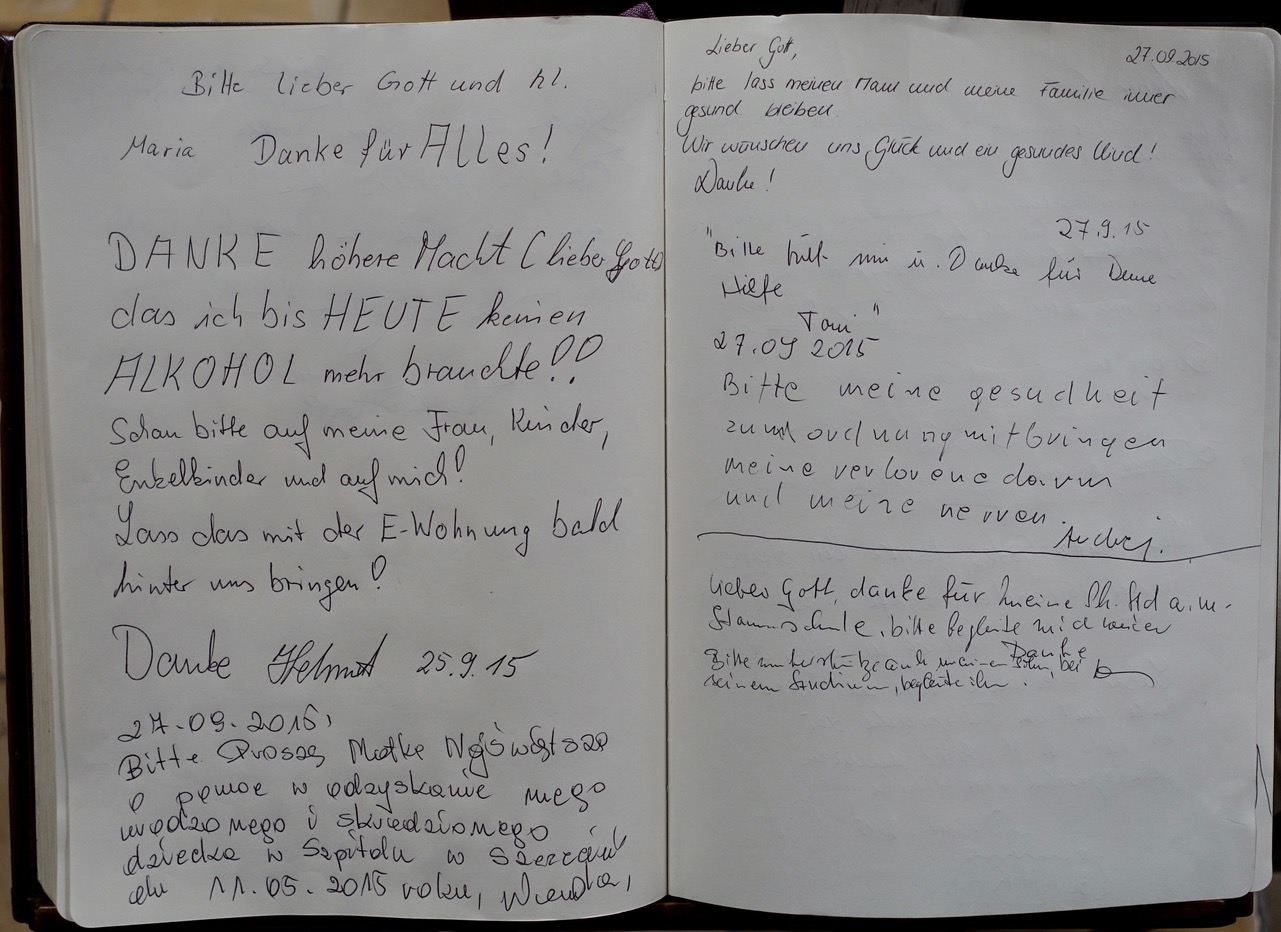 Bitte lieber Gott und hl.
Maria Danke für Alles!
DANKE höhere Macht (lieber Gott)
das ich bis HEUTE keinen
ALKOHOL mehr brauchte!!
Schau bitte auf meine Frau, Kinder,
Enkelkinder und auf mich!
Lass das mit der E-Wohnung bald
hinter uns bringen!
Danke Helmut 25.9.15
27.09.2015,
Bitte Proszę Matkę Najświętszą
o pomoc w odzyskanie mego
urodzonego i skradzionego
dziecka w Szpitalu w
dn 11.05.2015 roku,
Lieber Gott,
27.09.2015
bitte lass meinen Mann und meine Familie immer
gesund bleiben.
Wir wünschen uns Glück und ein gesundes Kind!
Danke!
27.9.15
"Bitte hilf mir u. Danke für Deine
Hilfe
Toni"
27.09 2015
Bitte meine gesudheit
zum ordnung mitbringen
meine verlorene darm
und meine nerven.
Andrej.
Lieber Gott, danke für meine a.m.
Stammschule, bitte begleite mich weiter
Danke
Bitte unterstütze auch meinen Sohn, bei
seinem Studium, begleite ihn.